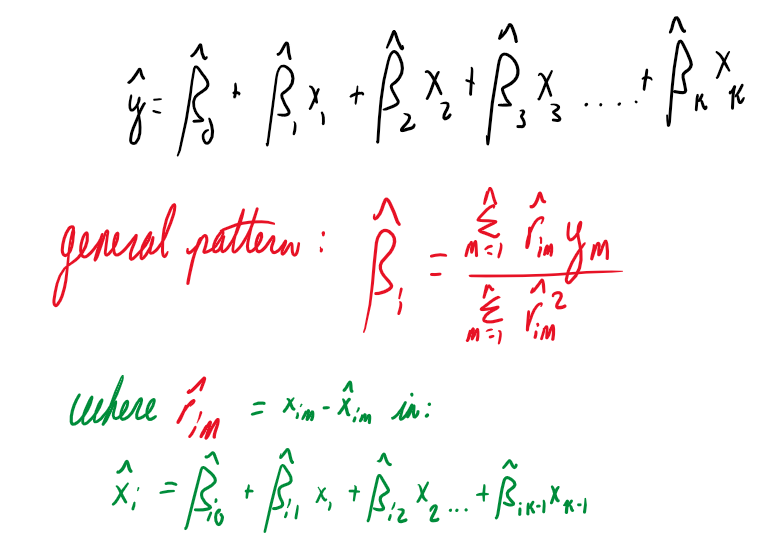 ŷ = β̂₀ + β̂₁ x₁ + β̂₂ x₂ + β̂₃ x₃ .... + β̂ₖ xₖ
general pattern : β̂ᵢ = Σₘ₌₁ⁿ r̂ᵢₘ yₘ / Σₘ₌₁ⁿ r̂ᵢₘ²
where r̂ᵢₘ = xᵢₘ - x̂ᵢₘ in:
x̂ᵢ = β̂ᵢ₀ + β̂ᵢ₁ x₁ + β̂ᵢ₂ x₂ ... + β̂ᵢₖ₋₁ xₖ₋₁